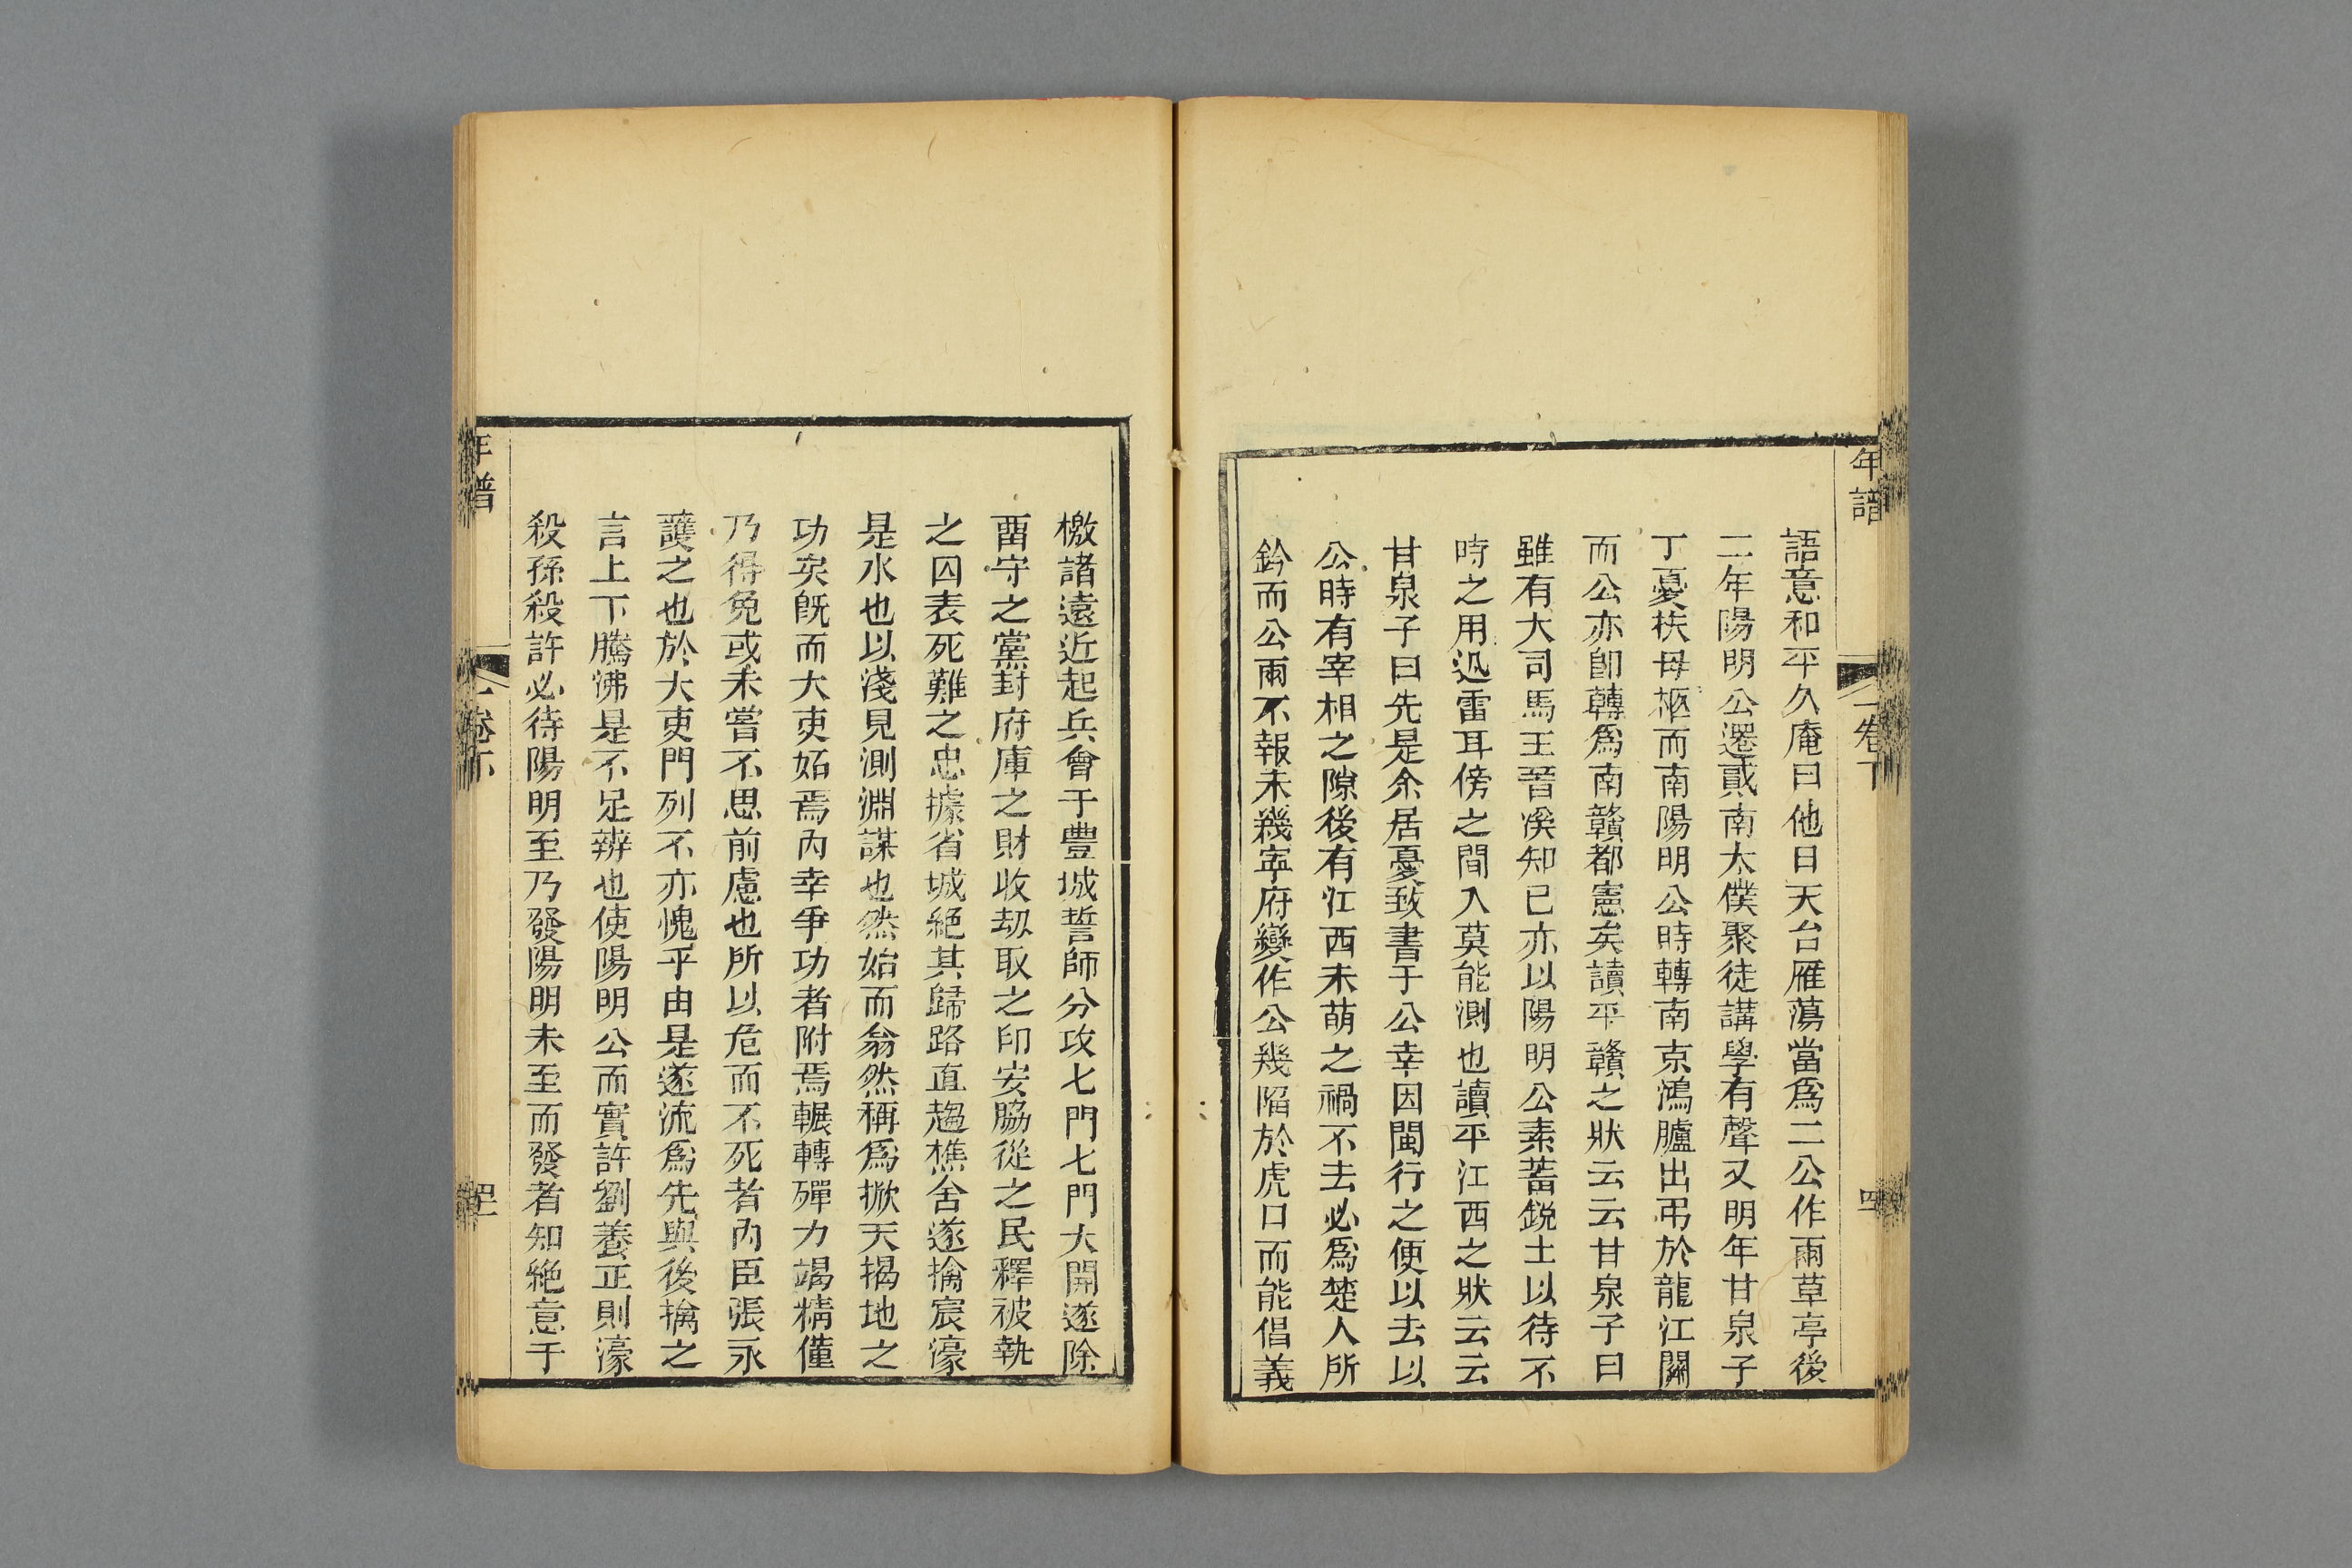 年譜
卷下
語意和平久庵曰他日天台雁蕩當爲二公作兩草亭後
二年陽明公遷貳南太僕聚徒講學有聲又明年甘泉子
丁憂扶母柩而南陽明公時轉南京鴻臚出弔於龍江關
而公亦卽轉爲南贛都憲矣讀平贛之狀云云甘泉子曰
雖有大司馬王晉溪知已亦以陽明公素蓄銳士以待不
時之用迅雷耳傍之間入莫能測也讀平江西之狀云云
甘泉子曰先是余居憂致書于公幸因閩行之便以去以
公時有宰相之隙後有江西未萌之禍不去必爲楚人所
鈐而公兩不報未幾寧府變作公幾陷於虎口而能倡義
檄諸遠近起兵會于豐城誓師分攻七門七門大開遂除
畱守之黨封府庫之財收刼取之印安脇從之民釋被執
之囚表死難之忠據省城絕其歸路直趨樵舍遂擒宸濠
是水也以淺見測淵謀也然始而翕然稱爲掀天揭地之
功矣旣而大吏妬焉內幸爭功者附焉輾轉殫力竭精僅
乃得免或未嘗不思前慮也所以危而不死者內臣張永
護之也於大吏門列不亦愧乎由是遂流爲先與後擒之
言上下騰沸是不足辨也使陽明公而實許劉養正則濠
殺孫殺許必待陽明至乃發陽明未至而發者知絕意于
年譜
卷下